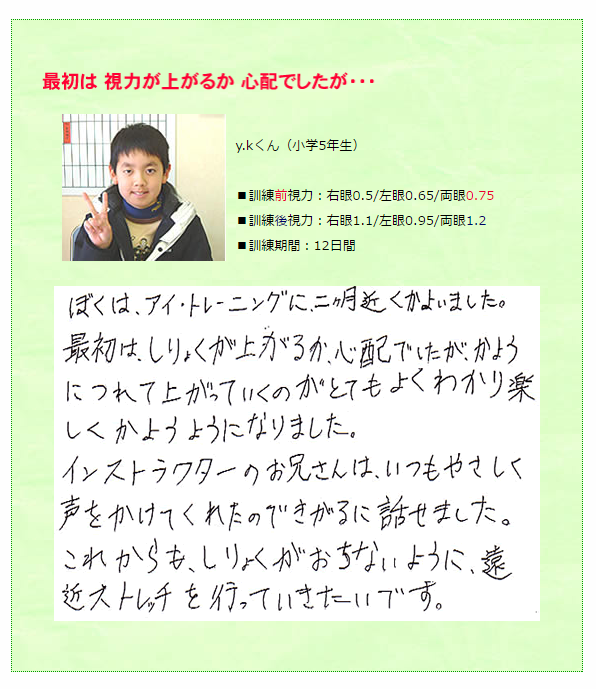 最初は 視力が上がるか 心配でしたが・・・
y.kくん（小学5年生）
■訓練前視力：右眼0.5/左眼0.65/両眼0.75
■訓練後視力：右眼1.1/左眼0.95/両眼1.2
■訓練期間：12日間
ぼくは、アイ・トレーニングに、二ヶ月近くかよいました。
最初は、しりょくが上がるか、心配でしたが、かよう
につれて上がっていくのがとてもよくわかり楽
しくかようようになりました。
インストラクターのお兄さんは、いつもやさしく
声をかけてくれたのできがるに話せました。
これからも、しりょくがおちないように、遠
近ストレッチを行っていきたいです。